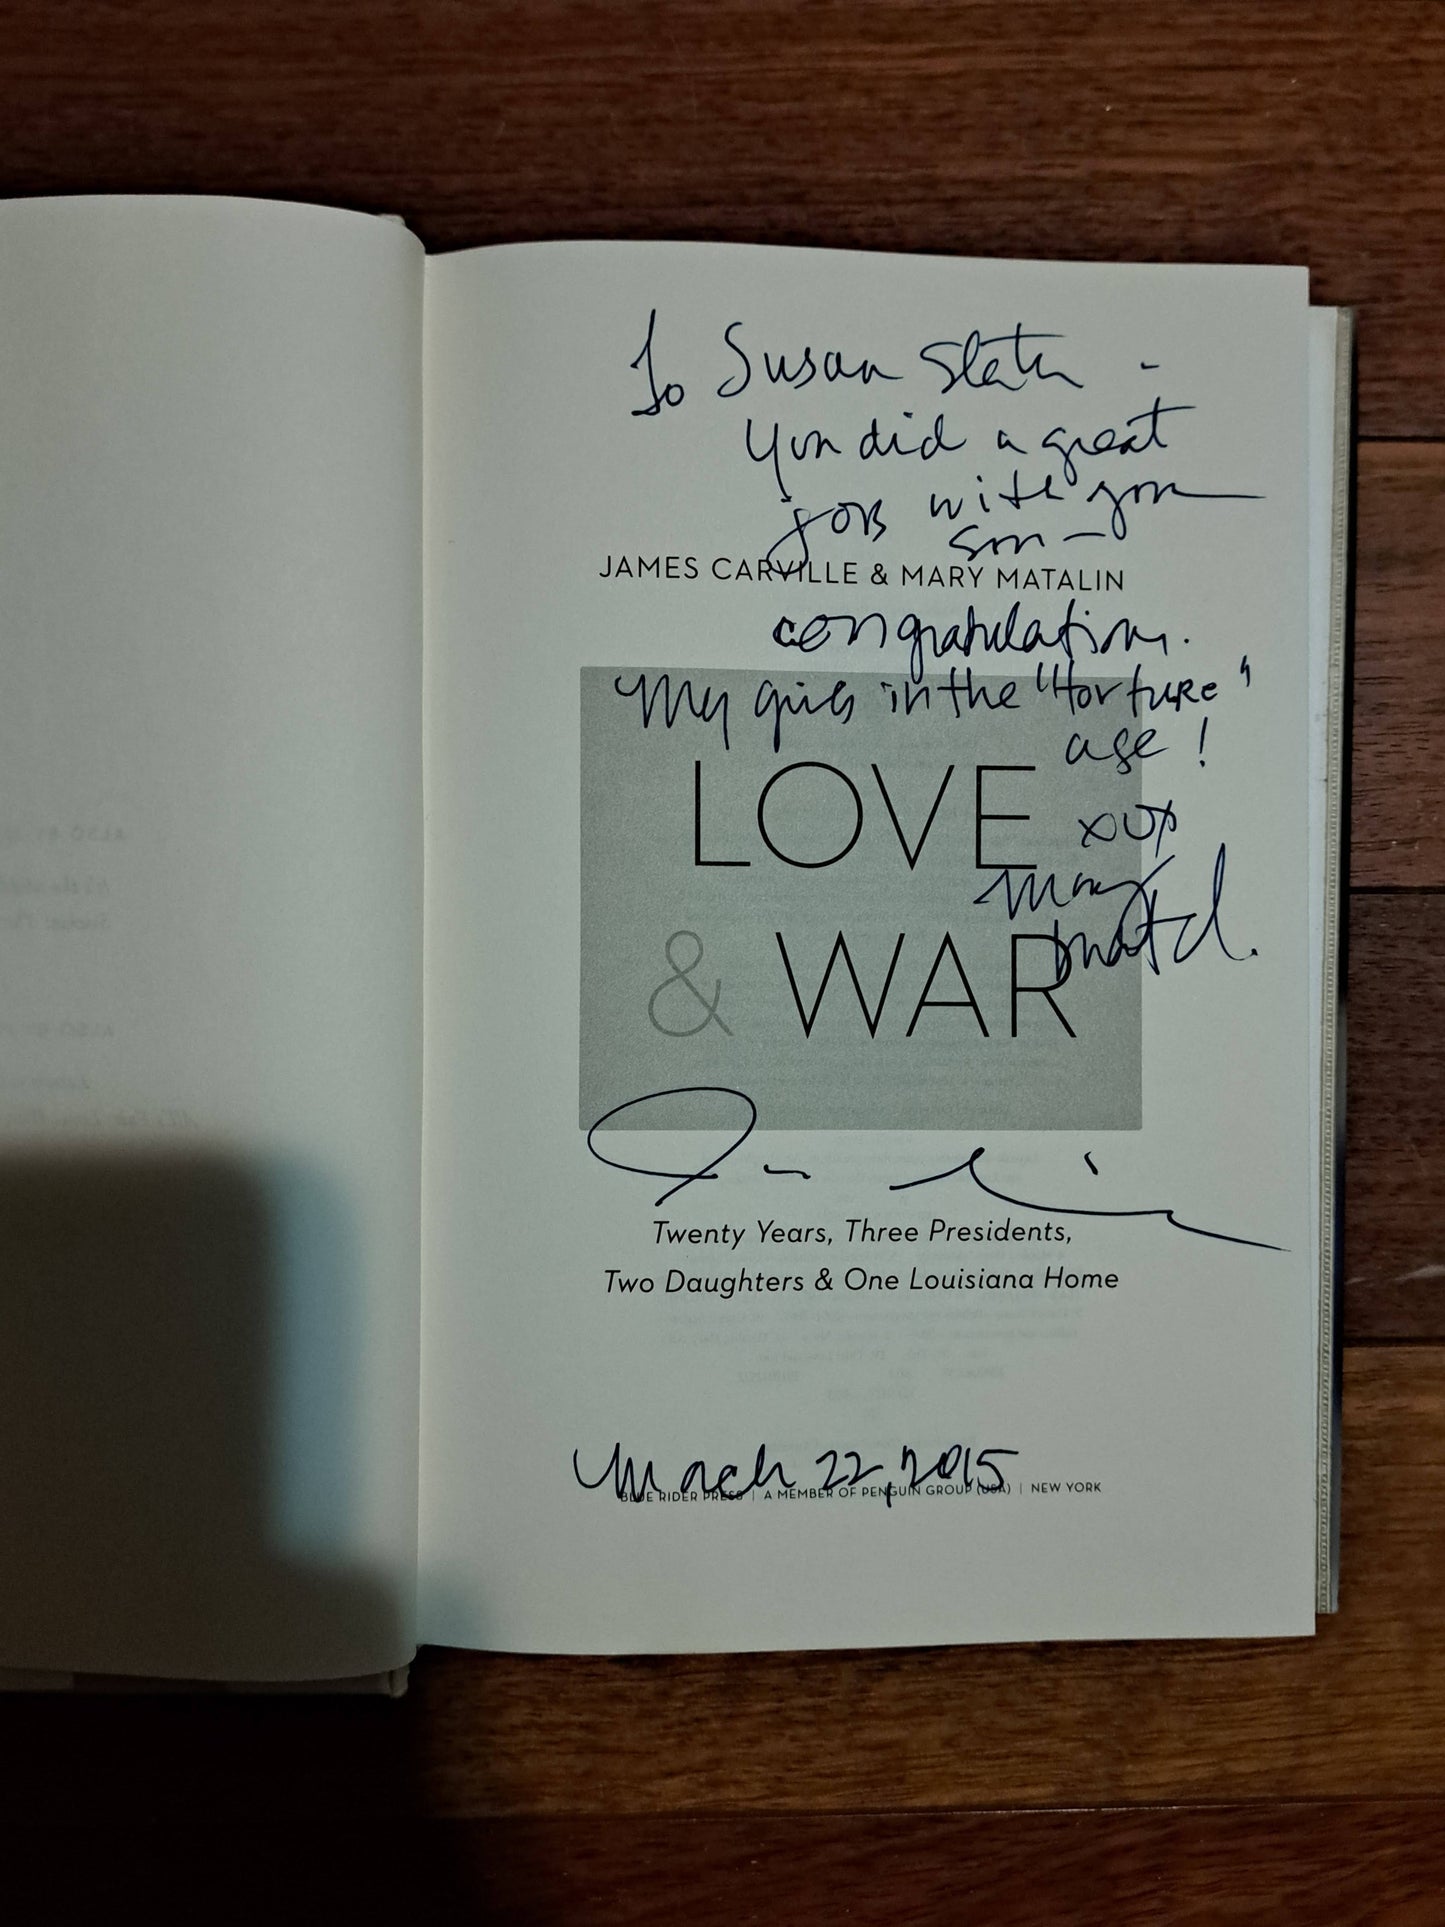 To Susan Slater -
you did a great
job with your
son -
JAMES CARVILLE & MARY MATALIN
congratulations.
My girls in the "torture"
age!
LOVE
xox
Mary
Matal.
& WAR
Twenty Years, Three Presidents,
Two Daughters & One Louisiana Home
March 22, 2015
BLUE RIDER PRESS | A MEMBER OF PENGUIN GROUP (USA) | NEW YORK